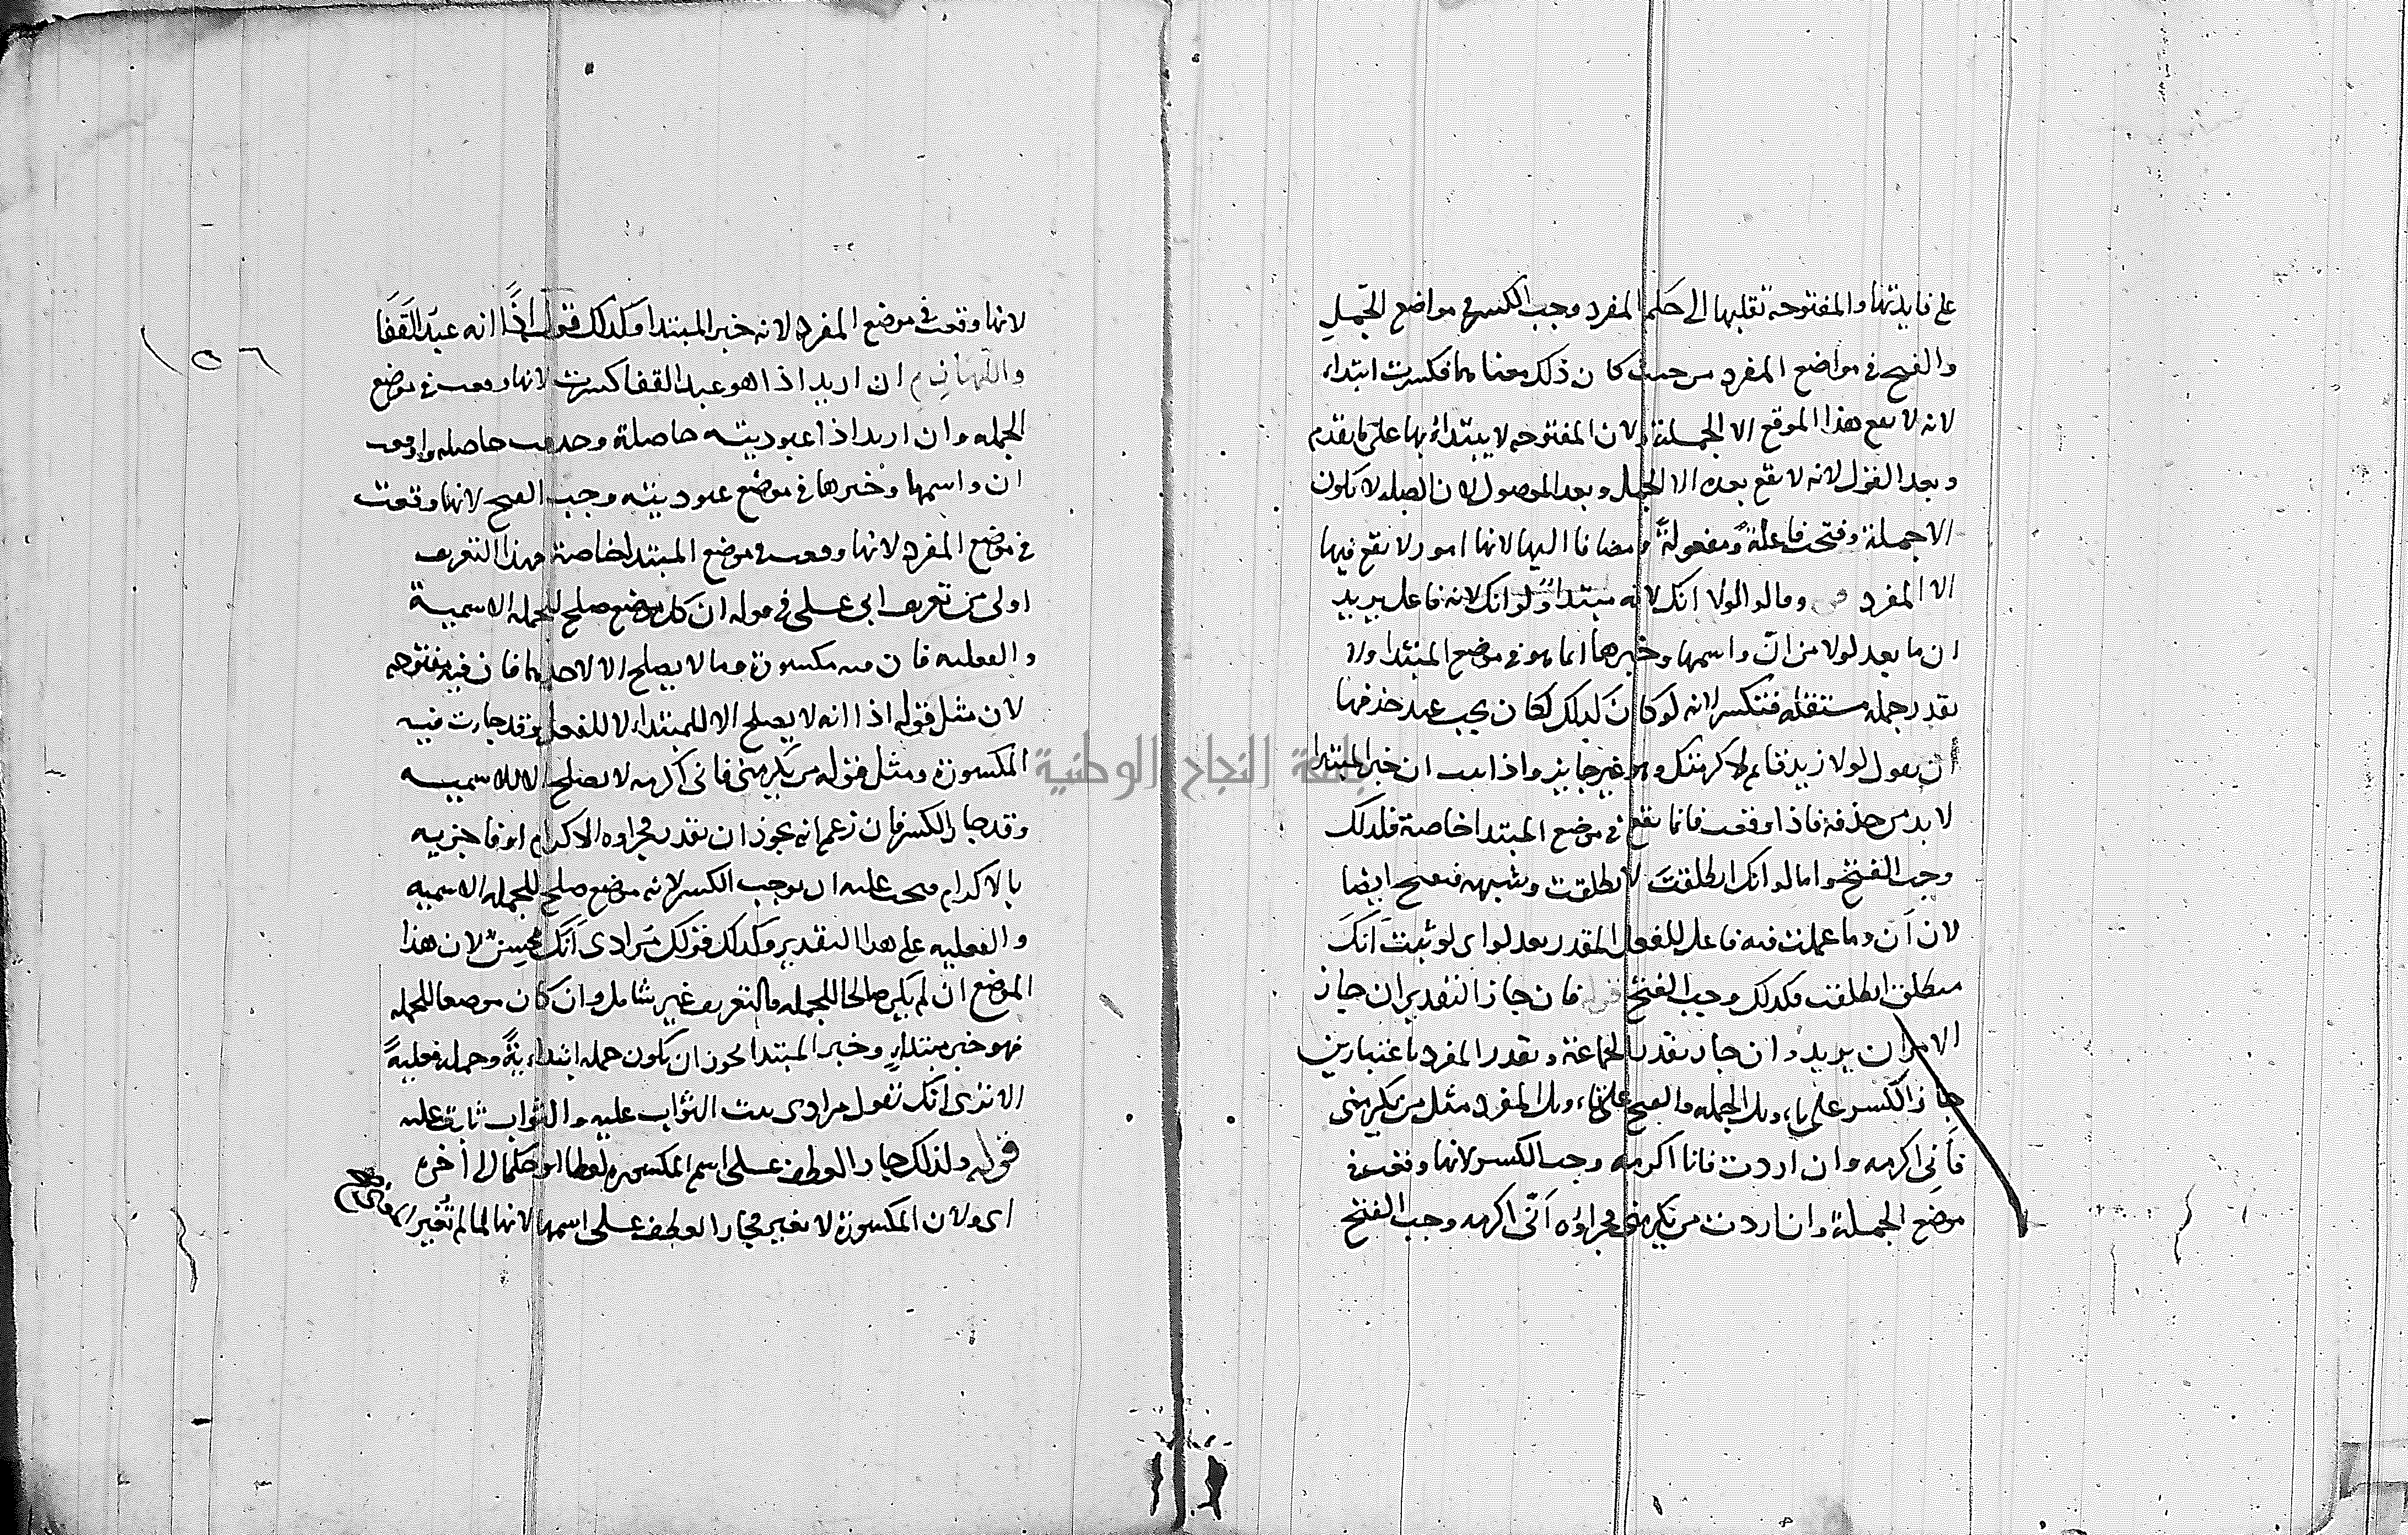 على فايدتها والمفتوحة تقلبها الى حكم المفرد وجب الكسر في مواضع الجمل
والفتح في مواضع المفرد من حيث كان ذلك معناهما فكسرت ابتداء
لانه لا يقع هذا الموقع الا الجملة ولان المفتوحه لا يبتداء بها على ما تقدم
وبعد القول لانه لا تقع بعده الا الجمل وبعد الموصول لان الصله لا تكون
الا جملة وفتحت فاعلة ومفعولة ومضافا اليها لانها امور لا تقع فيها
الا المفرد وقالوا لولا انك لانه مبتدا ولو انك لانه فاعل يريد
ان ما بعد لولا من ان واسمها وخبرها انما هو في موضع المبتدا ولا
تقدر جمله مستقله فتكسر لانه لو كان كذلك لكان يجب عند حذفها
ان يقول لولا زيد قايم لاكرمتك وهو غير جايز واذا ثبت ان خبر المبتدا
لا بد من حذفه فاذا وقعت فانما تقع في موضع المبتدا خاصة فلذلك
وجب الفتح واما لو انك انطلقت لانطلقت وشبهه فتفتح ايضا
لان ان وما عملت فيه فاعل للفعل المقدر بعد لو اى لو ثبت انك
منطلق انطلقت فكذلك وجب الفتح قوله فان جاز التقديران جاز
الامران يريد وان جاز تقدير الجملة وتقدير المفرد باعتبارين
جاز الكسر على تاويل الجمله والفتح على تاويل المفرد مثل من يكرمنى
فانى اكرمه وان اردت فانا اكرمه وجب الكسر لانها وقعت في
موضع الجملة وان اردت من يكرمنى فجزاؤه انى اكرمه وجب الفتح
١٥٦
لانها وقعت في موضع المفرد لانه خبر المبتدا وكذلك قوله اذا انه عبد القفا
واللهازم ان اريد اذا هو عبد القفا كسرت لانها وقعت في موضع
الجمله وان اريد اذا عبوديته حاصلة وحذفت حاصله واوقعت
ان واسمها وخبرها في موضع عبوديته وجب الفتح لانها وقعت
في موضع المفرد لانها وقعت في موضع المبتدا خاصة فهذا التعريف
اولى من تعريف ابى على في قوله ان كل موضع صلح للجمله الاسمية
والفعليه فان فيه مكسورة وما لا يصلح الا لاحديهما فان فيه مفتوحه
لان مثل قوله اذا انه لا يصلح الا للمبتداء لا للفعل وقد جازت فيه
المكسورة ومثل قوله من يكرمنى فانى اكرمه لا تصلح الا للاسميه
وقد جاز الكسر فان زعم انه يجوز ان تقدر فجزاوه الاكرام او فاجزيه
بالاكرام فيجب عليه ان يوجب الكسر لانه موضع صلح للجمله الاسميه
والفعليه على هذا التقدير وكذلك قولك مرادى انك محسن لان هذا
الموضع ان لم يكن صالحا للجمله فالتعريف غير شامل وان كان موضعا للجمله
فهو خبر مبتداء وخبر المبتدا يجوز ان يكون جمله ابتدايية وجمله فعلية
الا ترى انك تقول مرادى يثبت الثواب عليه والثواب ثابت عليه
قوله ولذلك جاز العطف على اسم المكسوره لفظا او حكما الى اخره
اى ولان المكسورة لا تغير فجاز العطف على اسمها لانها لما لم تغير
جامعة النجاح الوطنية